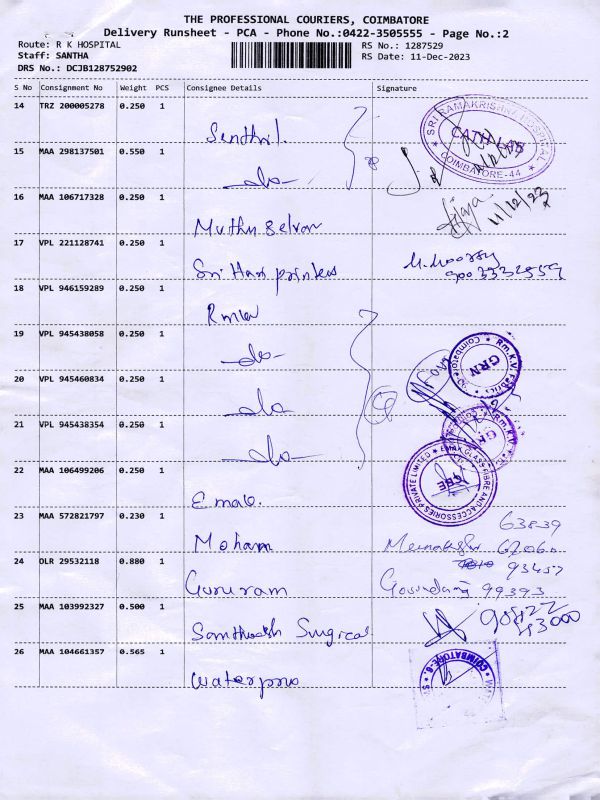 THE PROFESSIONAL COURIERS, COIMBATORE
Delivery Runsheet - PCA - Phone No.:0422-3505555 - Page No.:2
Route: R K HOSPITAL
RS No.: 1287529
Staff: SANTHA
RS Date: 11-Dec-2023
DRS No.: DCJB128752902
S No Consignment No Weight PCS Consignee Details Signature
14 TRZ 200005278 0.250 1
Senthil.
SRI RAMAKRISHNA HOSPITAL
CATH LAB
COIMBATORE-44
15 MAA 298137501 0.550 1
-do-
16 MAA 106717328 0.250 1
Muthu Selvan
11/12/23
17 VPL 221128741 0.250 1
Sri Hari printers
M. Moorthy
18 VPL 946159289 0.250 1
Rmkv
19 VPL 945438058 0.250 1
-do-
Rm.K.V. Fabrics
GRN
Coimbatore
20 VPL 945460834 0.250 1
-do-
21 VPL 945438354 0.250 1
-do-
GRN
22 MAA 106499206 0.250 1
EMAX GLASS FIBRE AND ACCESSORIES PRIVATE LIMITED
23 MAA 572821797 0.230 1
Mohan
63839
24 DLR 29532118 0.880 1
Gururam
93457
99393
25 MAA 103992327 0.500 1
Santhosh Surgical
26 MAA 104661357 0.565 1
Waterpro
COIMBATORE-6